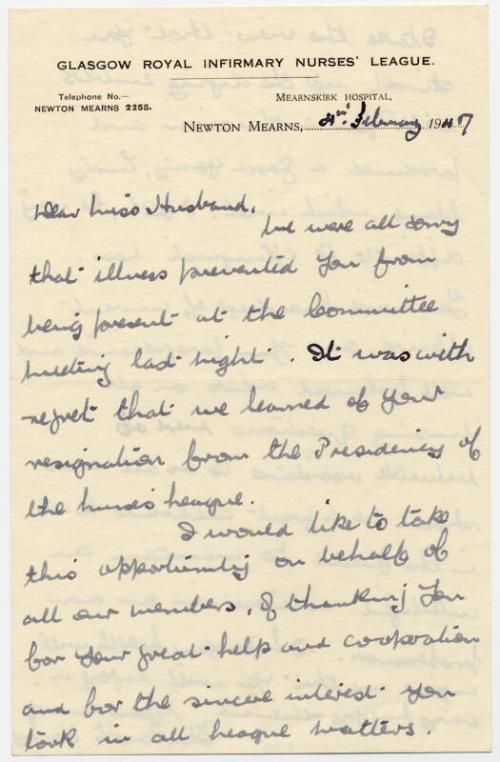 GLASGOW ROYAL INFIRMARY NURSES' LEAGUE.
Telephone No.—
NEWTON MEARNS 2255.
MEARNSKIRK HOSPITAL,
NEWTON MEARNS, 4th February 1947
Dear Miss Husband,
We were all sorry
that illness prevented you from
being present at the Committee
meeting last night. It was with
regret that we learned of your
resignation from the Presidency of
the Nurses League.
I would like to take
this opportunity on behalf of
all our members, of thanking you
for your great help and cooperation
and for the sincere interest you
took in all League matters.